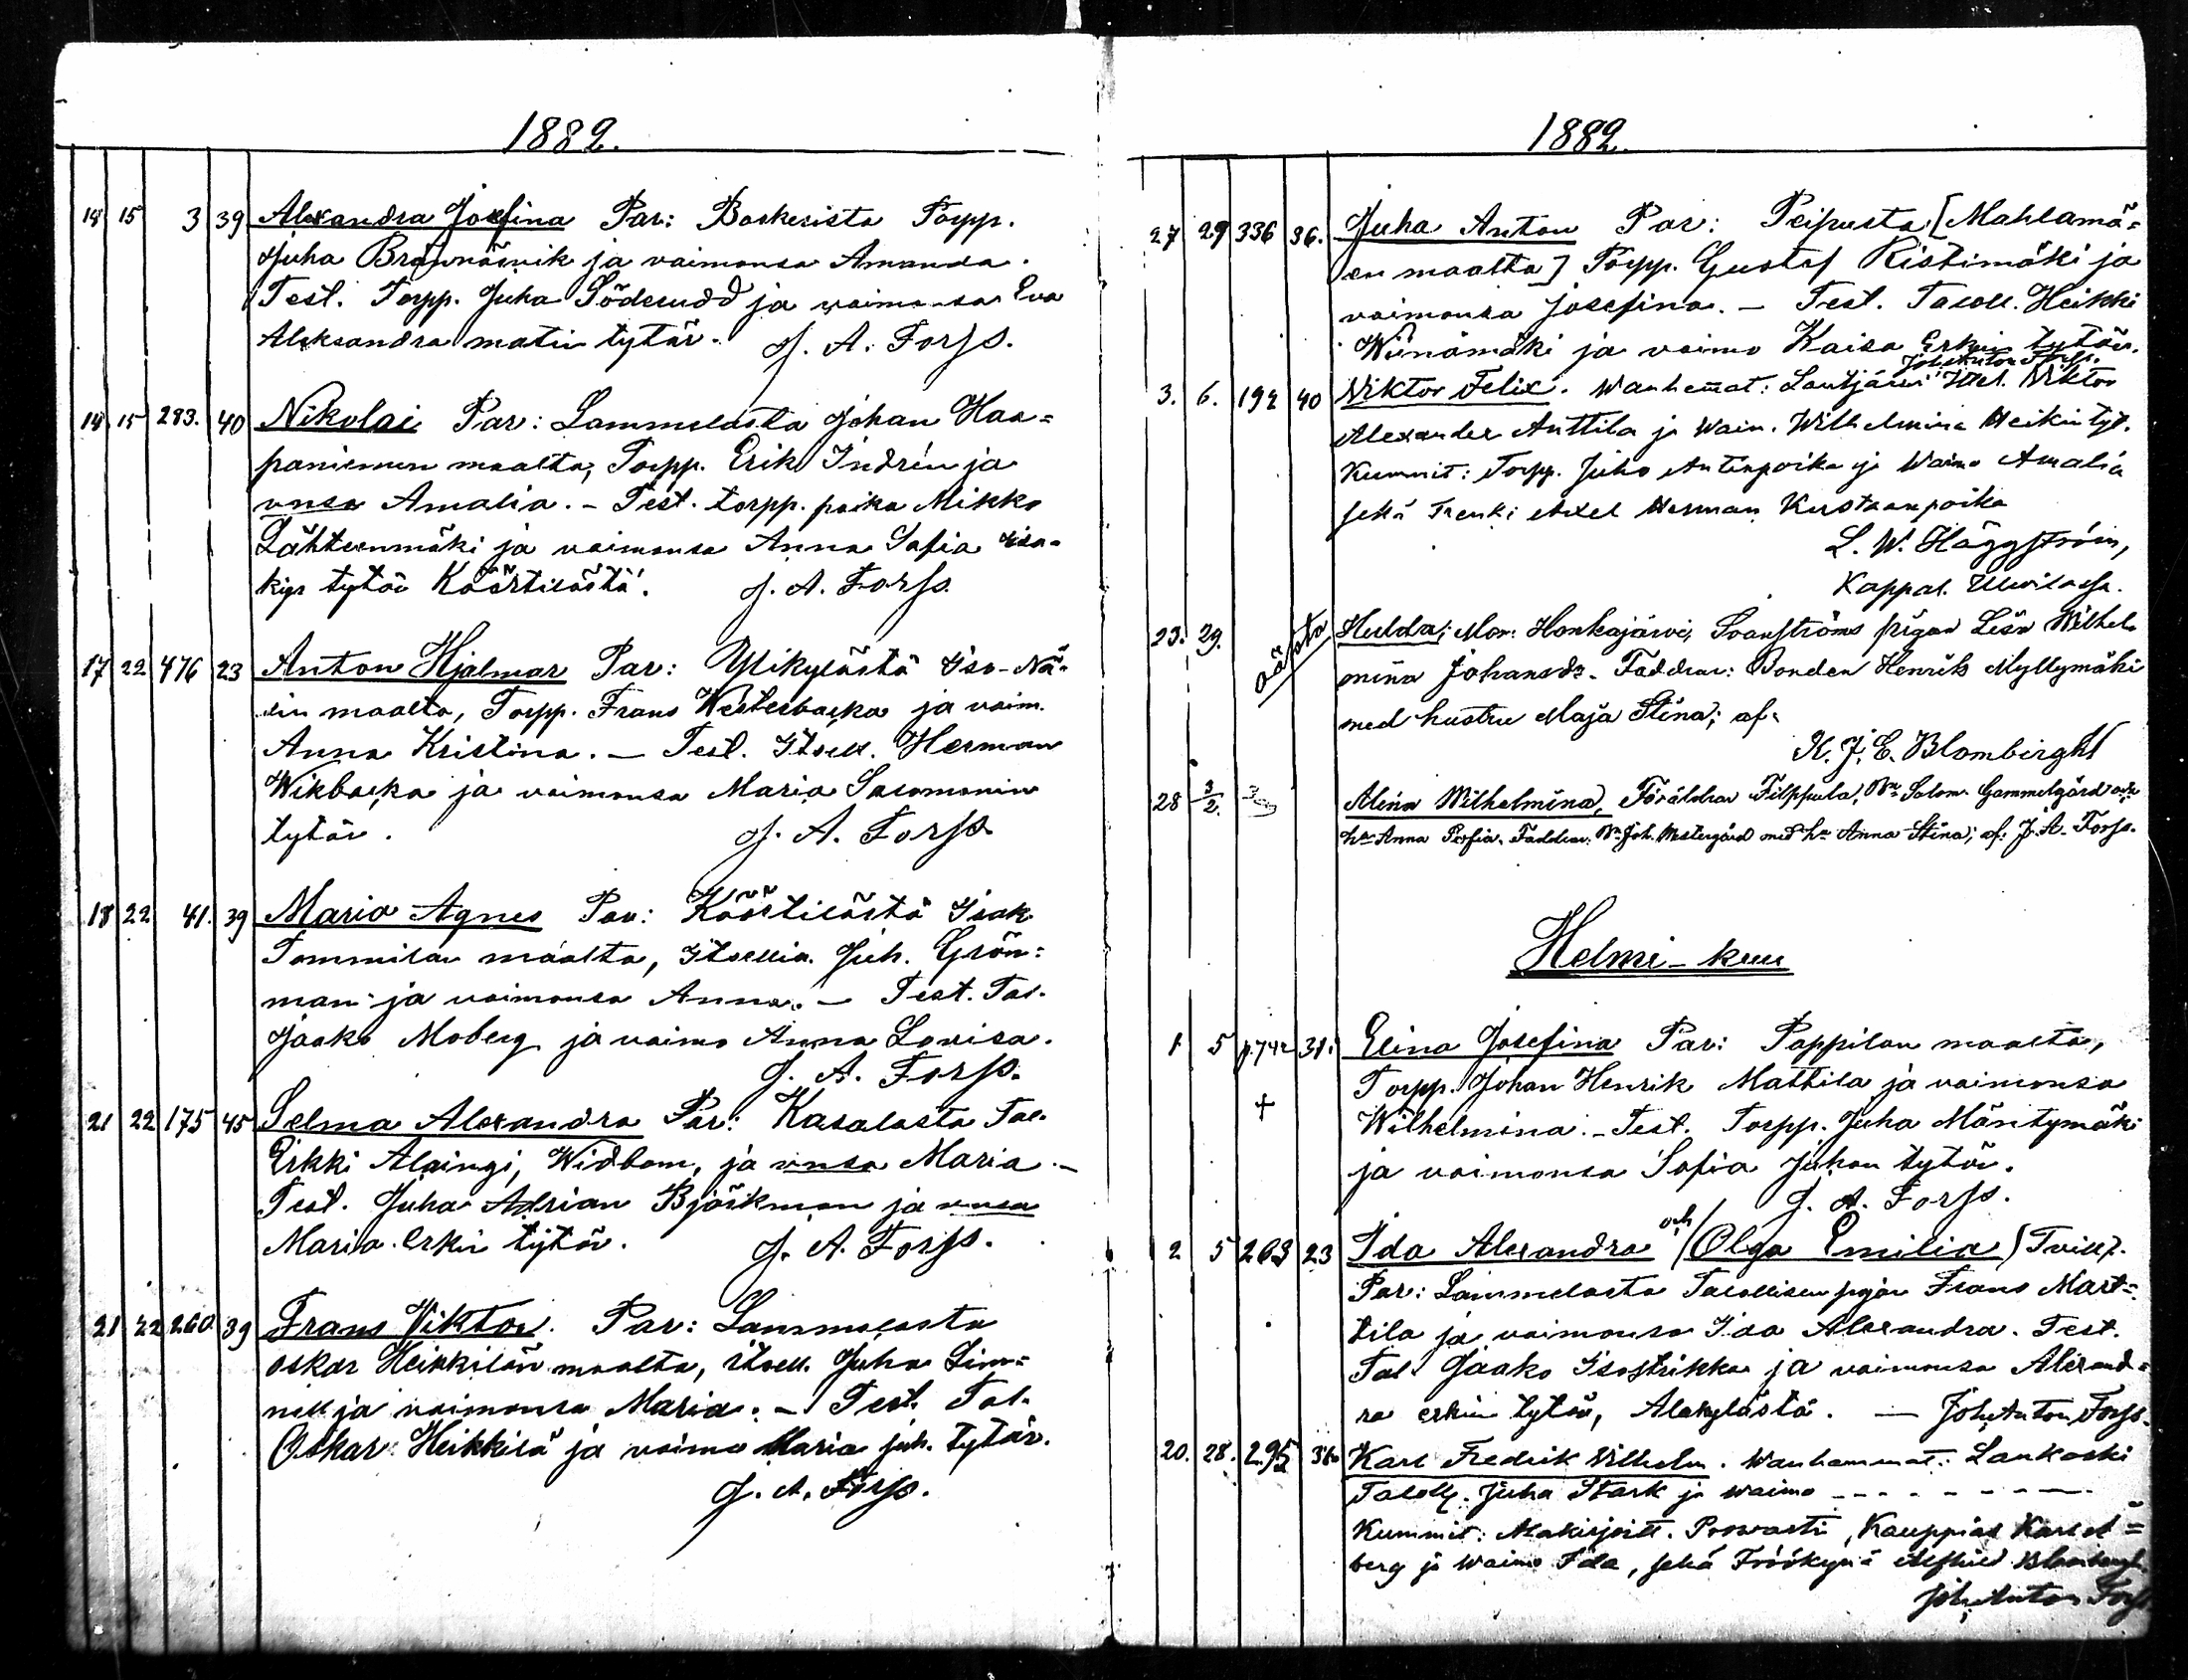 1882.
14 15 3 39 Alexandra Josefina Par: Baskerista Torpp.
Juha ja vaimonsa Amanda.
Test. Torpp. Juha Söderudd ja vaimonsa Eva
Aleksandra matin tytär. J. A. Forss.
14 15 283. 40 Nikolai Par: Lammelasta Johan Haa=
paniemen maalta, Torpp. Erik Indrén ja
vnsa Amalia. - Test. torpp. poika Mikko
Lähteenmäki ja vaimonsa Anna Sofia Isa-
kin tytär Köörtilästä. J. A. Forss.
17 22 476 23 Anton Hjalmar Par: Ylikylästä Iso-Nä-
sin maalta, Torpp. Frans Westerbacka ja vaim.
Anna Kristina. - Test. Itsell. Herman
Wikbacka ja vaimonsa Maria Salomonin
tytär. J. A. Forss.
18 22 41. 39 Maria Agnes Par: Köörtilästä Isak
Tommilan maalta, Itsellis. Juh. Grön=
man ja vaimonsa Anna. - Test. Tal.
Jaako Moberg ja vaimo Anna Lovisa.
J. A. Forss.
21 22 175 45 Selma Alexandra Par: Kasalasta Tal.
Erkki Alaingi, Widbom, ja vnsa Maria. -
Test. Juha Adrian Björkman ja vnsa
Maria Erkin tytär. J. A. Forss.
21 22 260 39 Frans Viktor. Par: Lammelasta
Oskar Heikkilän maalta, itsell. Juha Lin=
nell ja vaimonsa Maria. - Test. Tal.
Oskar Heikkilä ja vaimo Maria juh. tytär.
J. A. Forss.
1882.
27 29 336 36. Juha Anton Par: Peipusta [Mahlamä=
en maalta] Torpp. Gustaf Ristimäki ja
vaimonsa Josefina. - Test. Taloll. Heikki
Wiinämäki ja vaimo Kaisa Erkin tytär.
Joh. Anton Forss.
3. 6. 192 40 Viktor Felix. Wanhemat: Lautjärvi Itsel. Viktor
Alexander Anttila ja Waim. Wilhelmina Heikintyt.
Kummit: Torpp. Juho Antinpoika ja Waimo Amalia
sekä Trenki Axel Herman Kustaanpoika
L. W. Häggström,
Kappal. Ulvilassa.
23. 29. äpärä Hulda; Mor: Honkajärvi, Svanströms pigan Lisa Wilhel-
mina Johansdr. Faddrar: Bonden Henrik Myllymäki
med hustru Maja Stina; af:
K. J. E. Blombergh
28 3/2. Alina Wilhelmina, Föräldrar Filppula, Bn Salom. Gammelgård och
hu Anna Sofia. Faddrar: Bn Joh. Westergård med hu Anna Stina; af: J. A. Forss.
Helmi-kuu
1 5 p.742 31. Elina Josefina Par: Pappilan maalta,
Torpp. Johan Henrik Mattila ja vaimonsa
+ Wilhelmina. - Test. Torpp. Juha Mäntymäki
ja vaimonsa Sofia Juhan tytär.
J. A. Forss.
2 5 263 23 Ida Alexandra och (Olga Emilia) Tvill.
Par: Lammelasta Talollisen pojan Frans Mart=
tila ja vaimonsa Ida Alexandra. Test.
Tal. Jaako Isostrikka ja vaimonsa Alexand=
ra erkin tytär, Alakylästä. - Joh. Anton Forss.
20. 28. 295 36 Karl Fredrik Vilhelm. Wanhammat: Lankoski
Taloll. Juha Stark ja waimo - - - - - - -
Kummit: Makirjoitt. Prowasti, Kauppias Karlst=
berg ja Waimo Ida, sekä Fröökynä Alfhild Blombergh
Joh. Anton Forss